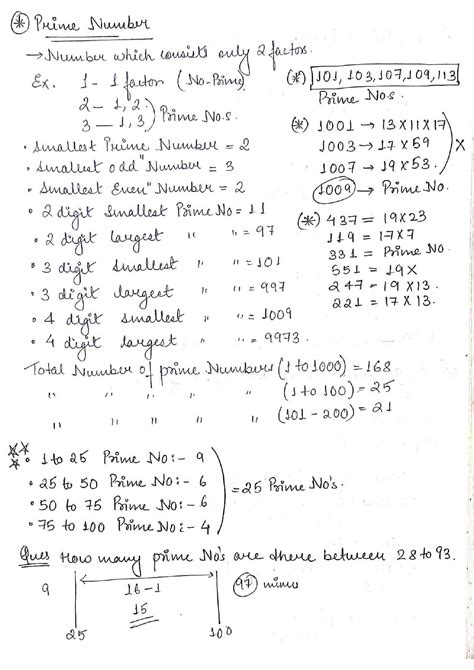 * Prime Number
→ Number which consists only 2 factors.
Ex. 1 - 1 factor (No-Prime)
2 - 1, 2.
3 - 1, 3
) Prime No.s.
• Smallest Prime Number = 2
• Smallest odd " Number = 3
• Smallest Even " Number = 2
• 2 digit Smallest Prime No = 11
• 2 digit largest " " = 97
• 3 digit smallest " " = 101
• 3 digit largest " " = 997
• 4 digit smallest " " = 1009
• 4 digit largest " " = 9973.
(*) 101, 103, 107, 109, 113
Prime Nos.
(*) 1001 → 13 X 11 X 17
1003 → 17 X 59
1007 → 19 X 53.
) X
1009 → Prime No.
(*) 437 = 19 X 23
119 = 17 X 7
331 = Prime No.
551 = 19 X
247 = 19 X 13.
221 = 17 X 13.
Total Number of prime Numbers (1 to 1000) = 168
" " " " (1 to 100) = 25
" " " " (101 - 200) = 21
• 1 to 25 Prime No:- 9
• 25 to 50 Prime No:- 6
• 50 to 75 Prime No:- 6
• 75 to 100 Prime No:- 4
) = 25 Prime No's.
Ques How many prime No's are there between 28 to 93.
9
16 - 1
15
25 100
97 minus